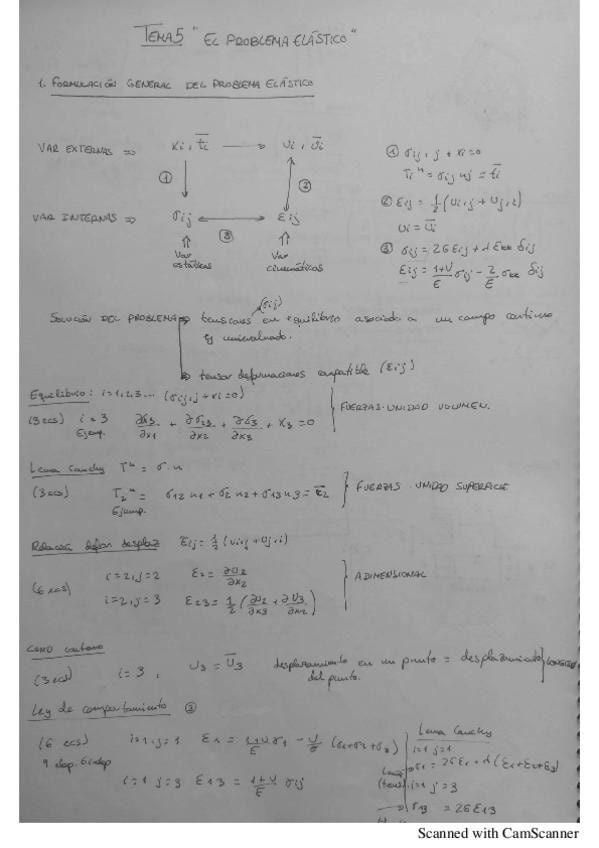 TEMA 5 "EL PROBLEMA ELÁSTICO"
1. FORMULACIÓN GENERAL DEL PROBLEMA ELÁSTICO
VAR EXTERNAS ⇒ Xi, t̄i → ui, ūi
① ② ③
VAR INTERNAS ⇒ σij ↔ εij
Var estáticas
Var cinemáticas
① σij,j + xi = 0
Ti^n = σij nj = t̄i
② εij = 1/2 (ui,j + uj,i)
ui = ūi
③ σij = 2G εij + λ εkk δij
εij = (1+ν)/E σij - ν/E σkk δij
SOLUCIÓN DEL PROBLEMA ⇒ tensiones (σij) en equilibrio asociado a un campo continuo
y univaluado.
tensor deformaciones compatible (εij)
Equilibrio: i=1,2,3... (σij,j + xi = 0)
(3 ecs) i=3
Ejemp.
+ X3 = 0
FUERZAS·UNIDAD VOLUMEN.
Lema Cauchy T^n = σ·n
(3 ecs) T2^n = σ12 n1 + σ2 n2 + σ13 n3 = t̄2
Ejemp.
FUERZAS·UNIDAD SUPERFICIE
Relación defor desplaz εij = 1/2 (ui,j + uj,i)
(6 ecs) i=2, j=2 ε2 = ∂u2/∂x2
i=2, j=3 ε23 = 1/2 (∂u2/∂x3 + ∂u3/∂x2)
ADIMENSIONAL
COND contorno
(3 ecs) i=3, u3 = ū3 desplazamiento en un punto = desplazamiento
del punto.
Ley de comportamiento ③
(6 ecs) i=1, j=1 ε1 = (1+ν)/E σ1 - ν/E (σ1+σ2+σ3)
i=1 j=3 ε13 = (1+ν)/E σij
i=1 j=1
σ1 = 2G ε1 + λ(ε1+ε2+ε3)
i=1 j=3
σ13 = 2G ε13
Scanned with CamScanner